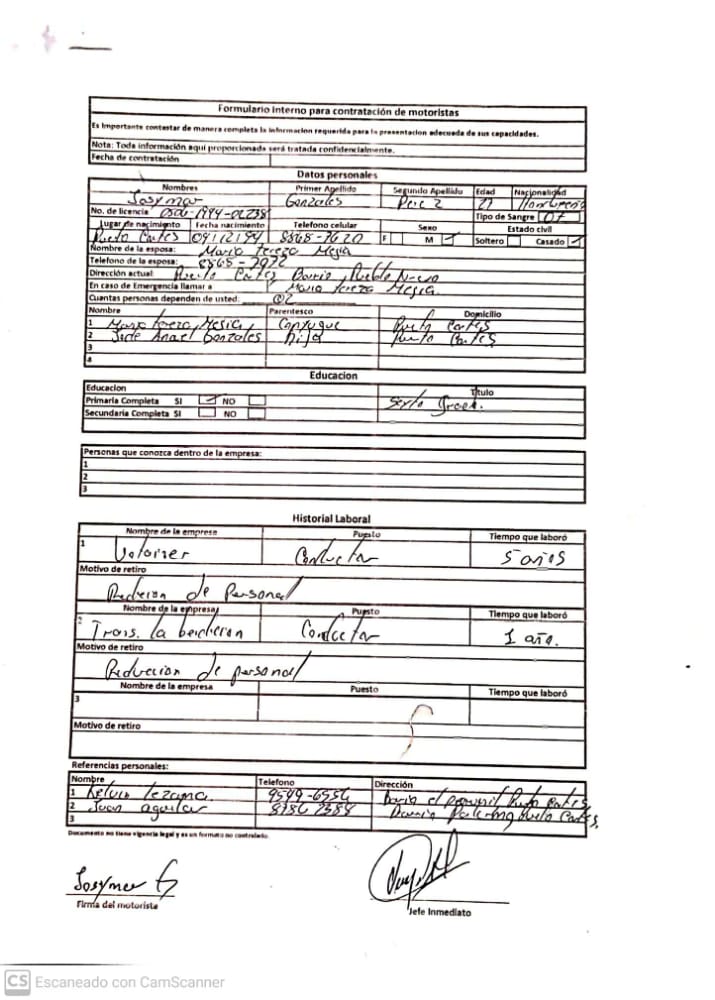 Formulario interno para contratación de motoristas
Es Importante contestar de manera completa la informacion requerida para la presentacion adecuada de sus capacidades.
Nota: Toda información aqui proporcionada será tratada confidencialmente.
Fecha de contratación
Datos personales
Nombres Primer Apellido Segundo Apellido Edad Nacionalidad
Josymar Gonzales 27
No. de licencia Tipo de Sangre
Lugar de nacimiento Fecha nacimiento Telefono celular Sexo Estado civil
09112194 8868-7620 F M Soltero Casado
Nombre de la esposa: Maria Tereza Mesia
Telefono de la esposa: 8865-7972
Dirección actual Puerto Cortes Barrio Pueblo Nuevo
En caso de Emergencia llamar a Maria Tereza Mesia
Cuantas personas dependen de usted: 02
Nombre Parentesco Domicilio
1 Maria Tereza Mesia Conyugue Puerto Cortes
2 Anael Gonzales hija Puerto Cortes
3
4
Educacion
Educacion Titulo
Primaria Completa SI NO Sexto
Secundaria Completa SI NO
Personas que conozca dentro de la empresa:
1
2
3
Historial Laboral
Nombre de la empresa Puesto Tiempo que laboró
1 Conductor 5 años
Motivo de retiro
de Personal
Nombre de la empresa Puesto Tiempo que laboró
2 Trans. la Conductor 1 año.
Motivo de retiro
Reduccion de personal
Nombre de la empresa Puesto Tiempo que laboró
3
Motivo de retiro
Referencias personales:
Nombre Telefono Dirección
1 Kelvin Lezama 9549-6556 Barrio el
2 Juan aguilar Cortes.
3
Documento no tiene vigencia legal y es un formato no controlado.
Josymar G
Firma del motorista
Jefe Inmediato
CS Escaneado con CamScanner